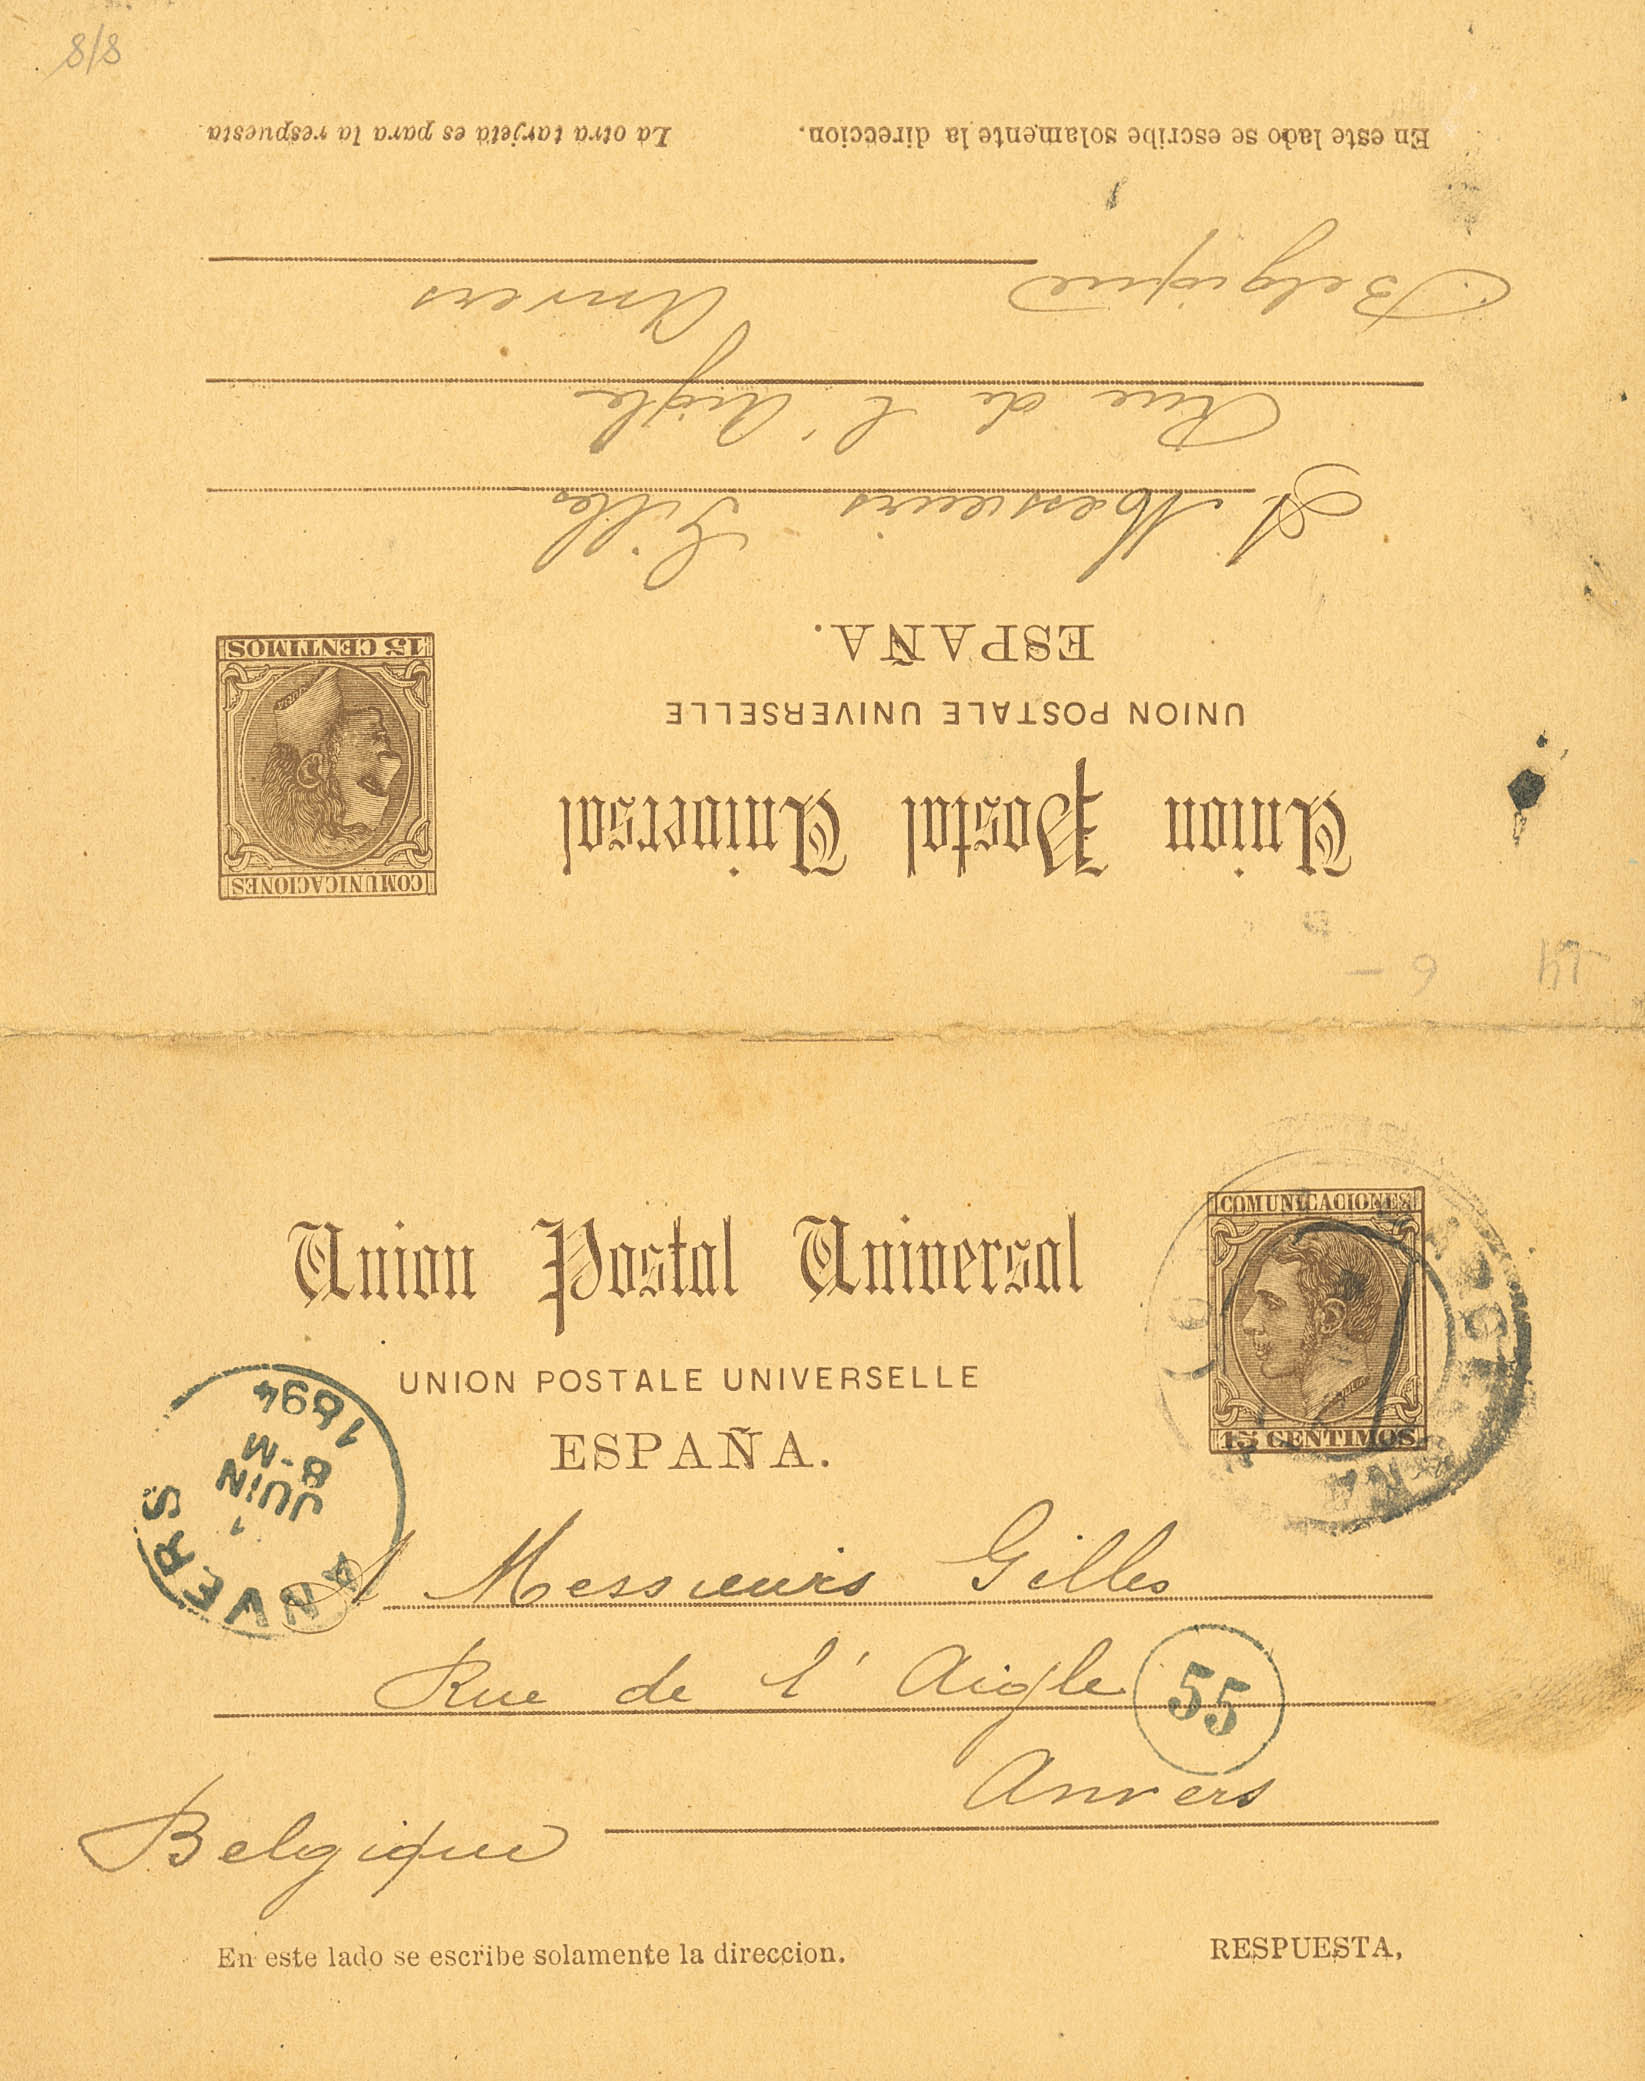 8/8
En este lado se escribe solamente la direccion. La otra tarjeta es para la respuesta.
Belgique Anvers
Rue de l'Aigle
A Messieurs Gilles
ESPAÑA.
UNION POSTALE UNIVERSELLE
Union Postal Universal
15 CENTIMOS
COMUNICACIONES
6 -
Union Postal Universal
UNION POSTALE UNIVERSELLE
ESPAÑA.
COMUNICACIONES
15 CENTIMOS
ANVERS
1
JUIN
8-M
1894
A Messieurs Gilles
Rue de l'Aigle
55
Anvers
Belgique
En este lado se escribe solamente la direccion. RESPUESTA,